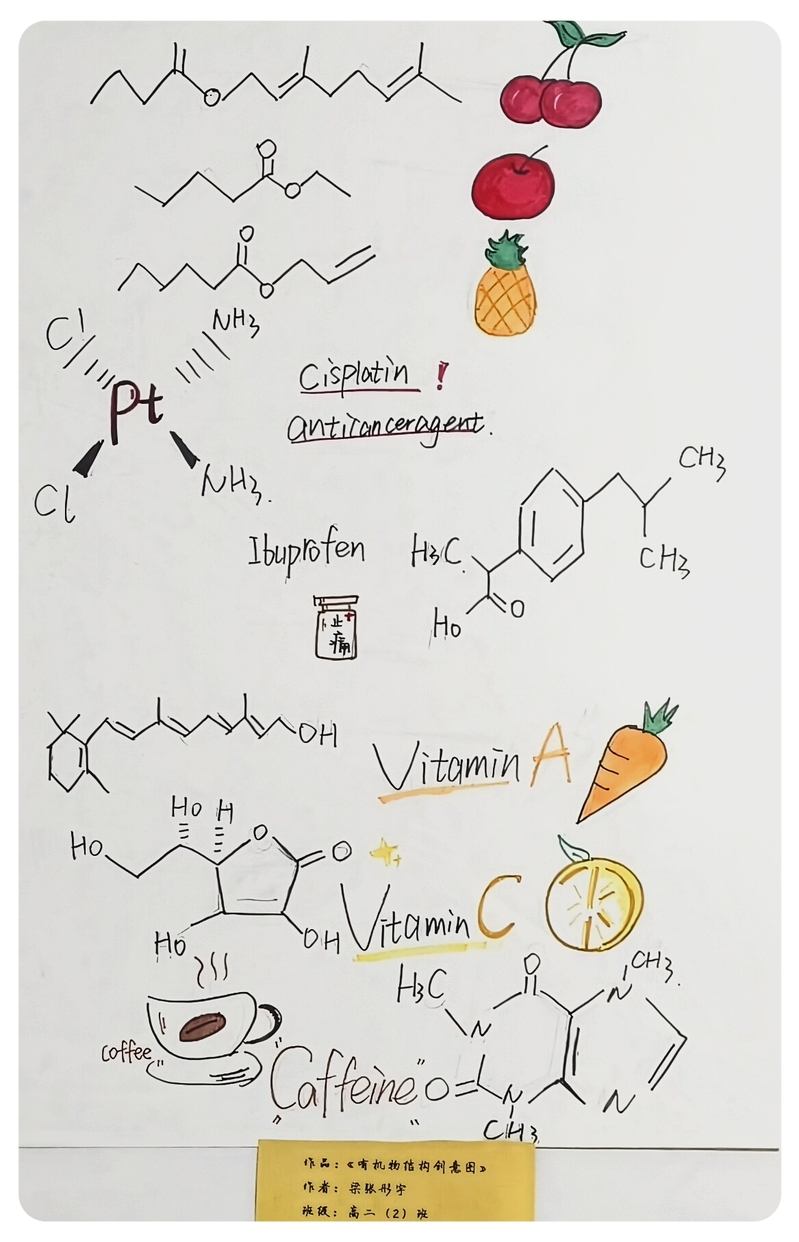 O
O
O
O
O
Cl
NH3
Pt
Cl
NH3.
Cisplatin !
Anticanceragent.
Ibuprofen
H3C
CH3
CH3
HO
O
止
痛
OH
Vitamin A
HO
H
HO
O
O
HO
OH
Vitamin C
coffee
"Caffeine"
H3C
O
N
CH3.
N
O
N
N
CH3
作品：《有机物结构创意图》
作者：梁张彤宇
班级：高二（2）班